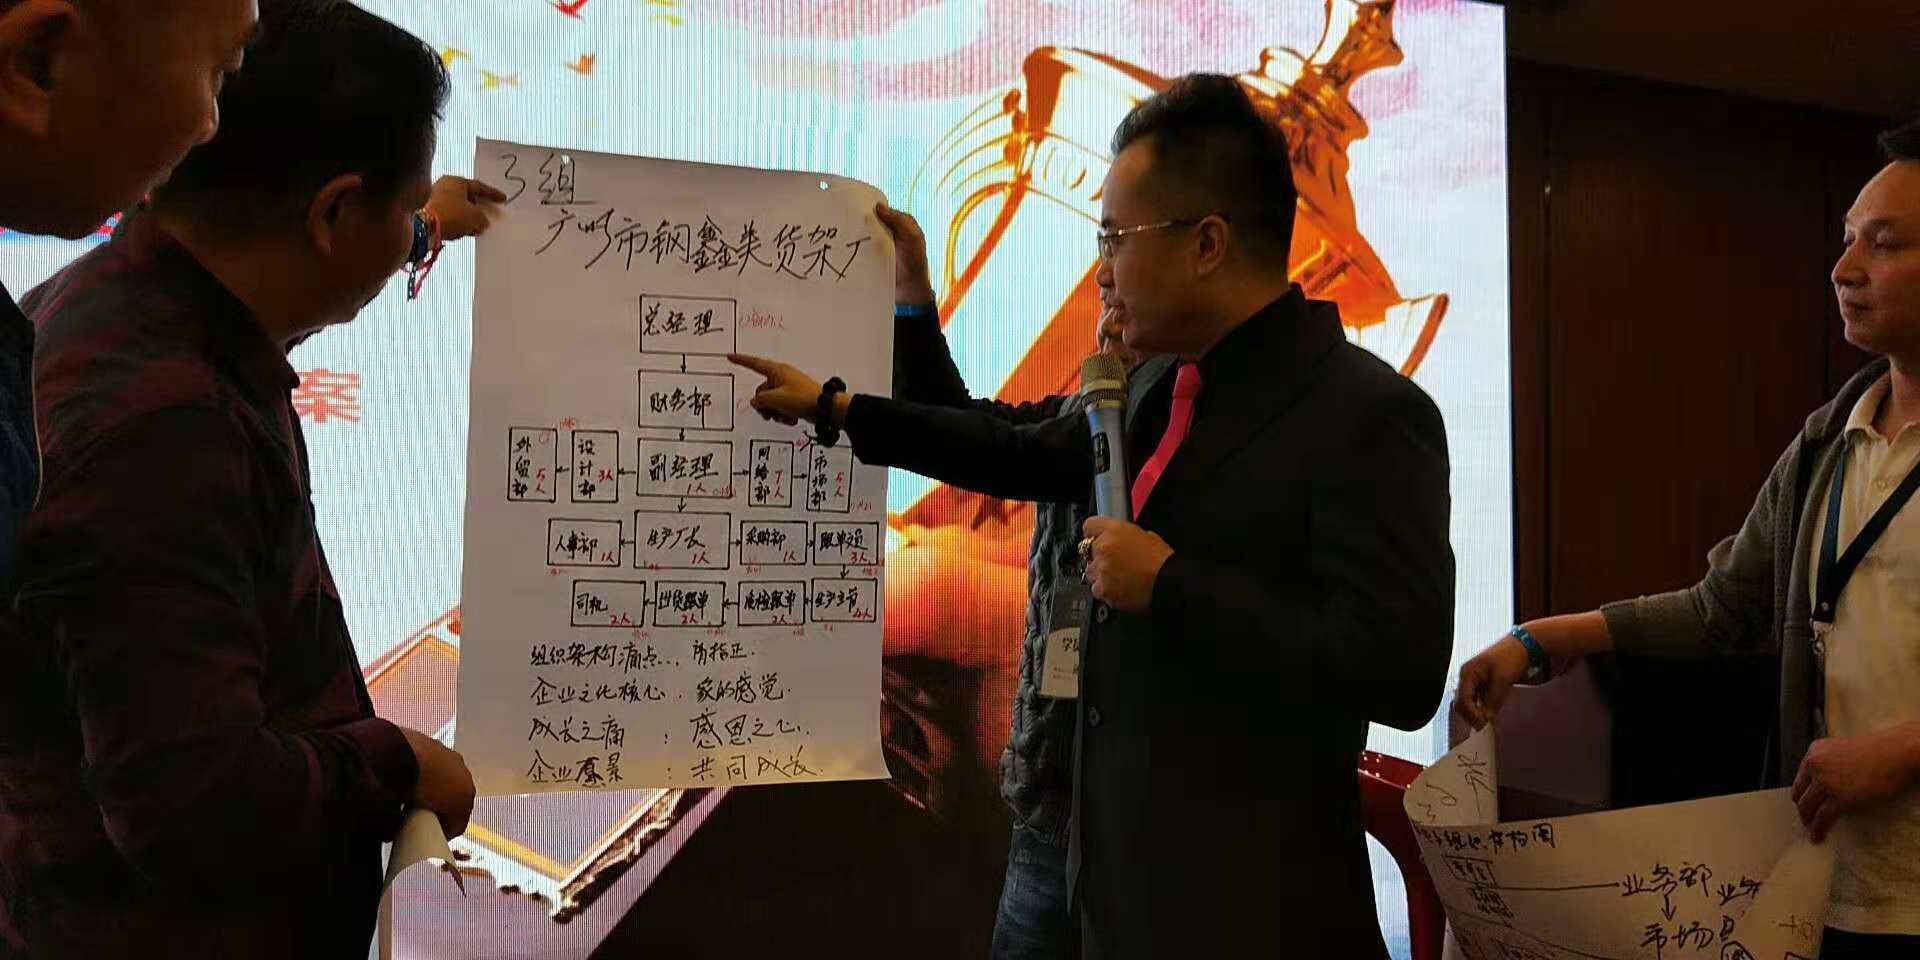 3组
广州市钢鑫美货架厂
总经理
财务部
外贸部 5人
设计部 3人
副经理 1人
网络部 7人
市场部 5人
人事部 1人
生产厂长 1人
采购部 1人
跟单文员 3人
司机 2人
出货跟单 2人
质检跟单 2人
生产主管 4人
组织架构痛点..,
企业文化核心. 家的感觉.
成长之痛 : 感恩之心.
企业愿景 : 共同成长.
案
组织架构图
业务部 业务
市场